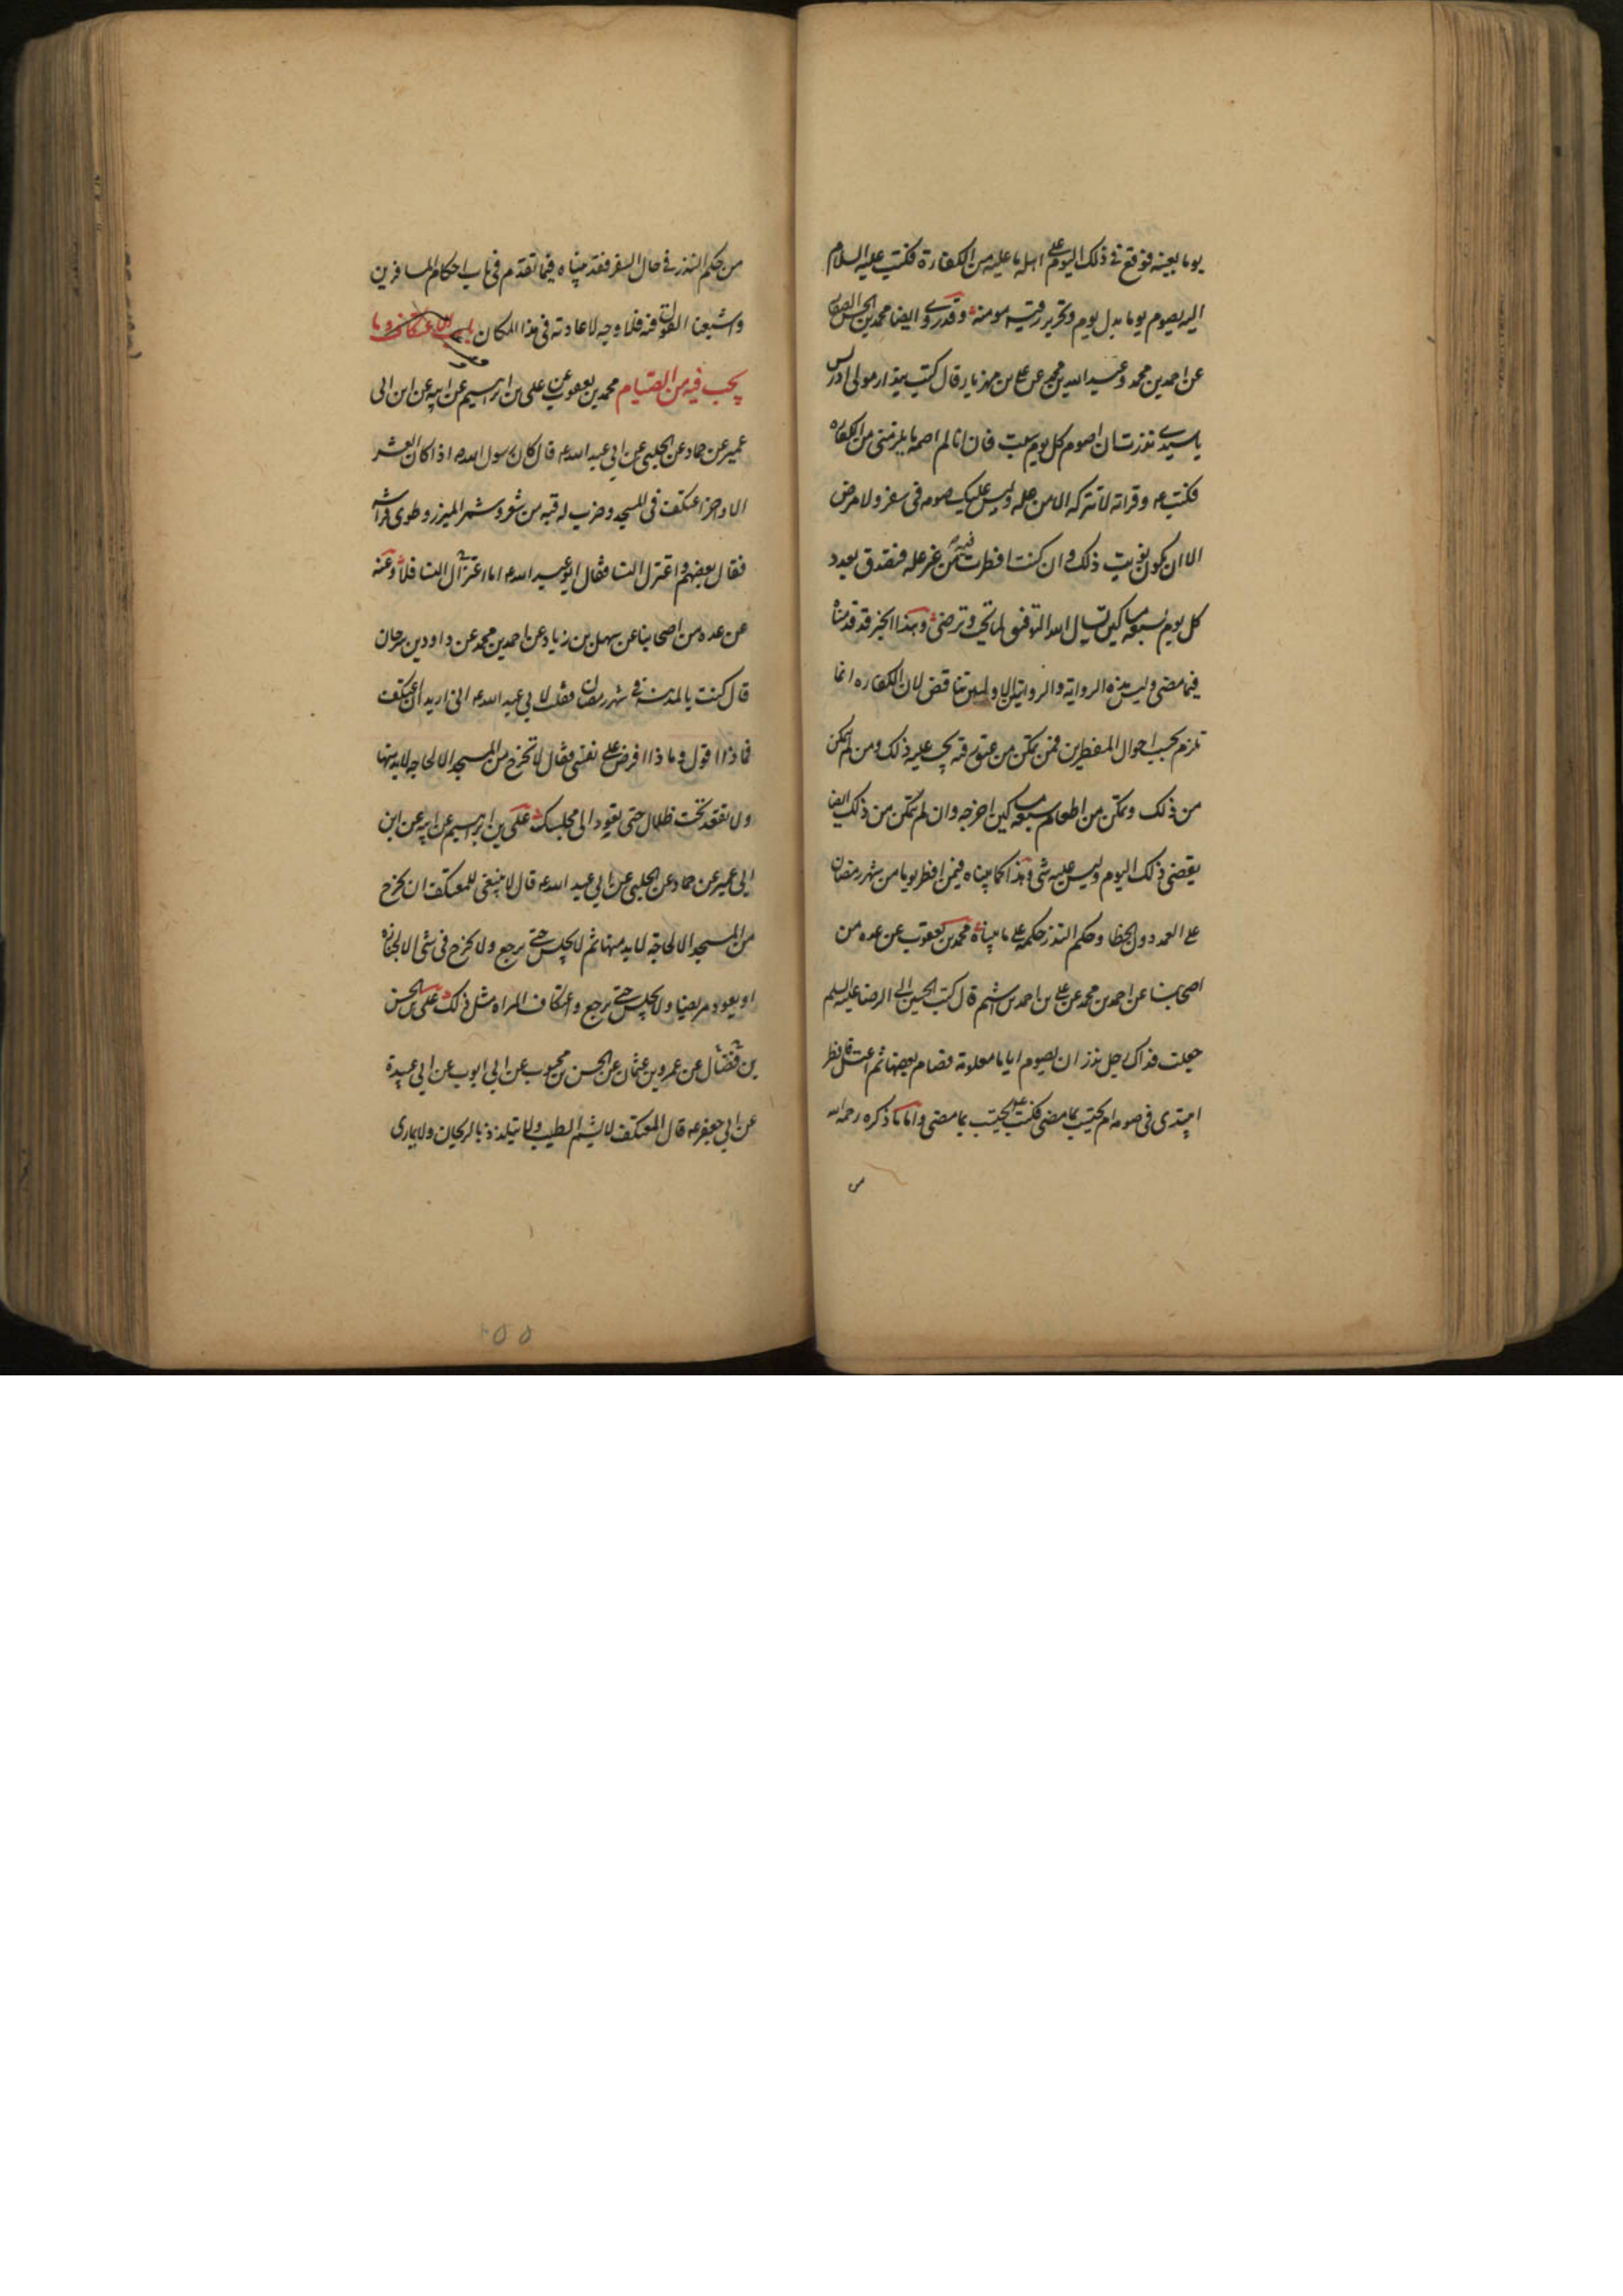 يوما بعينه فوقع في ذلك اليوم على اهله ما عليه من الكفارة فكتب عليه السلام
اليه يصوم يوما بدل يوم وتحرير رقبه مومنة وقد روى ايضا محمد بن الحسن الصفار
عن احمد بن محمد وعبد الله بن محمد عن علي بن مهزيار قال كتب بندار مولى ادريس
يا سيدي نذرت ان اصوم كل يوم سبت فان انا لم اصمه ما يلزمني من الكفاره
فكتب ع وقراته لا تتركه الا من عله وليس عليك صومه في سفر ولا مرض
الا ان يكون نويت ذلك وان كنت افطرت فيه من غير عله فتصدق بعدد
كل يوم لسبعه مساكين نسال الله التوفيق لما تحب وترضى وهذا الخبر قد قدمناه
فيما مضى وليس بين هذه الروايه والروايتين الاولتين تناقض لان الكفاره انما
تلزم بحسب احوال المفطرين فمن تمكن من عتق رقبه يجب عليه ذلك ومن لم يتمكن
من ذلك وتمكن من اطعام سبعه مساكين اخرجه وان لم يتمكن من ذلك ايضا
يقضى ذلك اليوم وليس عليه شى وهذا كما بيناه فيمن افطر يوما من شهر رمضان
على العمد دون الخطا وحكم النذر حكمه على ما بيناه محمد بن يعقوب عن عده من
اصحابنا عن احمد بن محمد عن علي بن احمد بن اشيم قال كتب الحسين الى الرضا عليه السلم
جعلت فداك رجل نذر ان يصوم اياما معلومة فصام بعضها ثم اعتل فافطر
ايبتدى في صومه ام يحتسب بما مضى فكتب اليه يحتسب بما مضى واما ما ذكره رحمه الله
من
من حكم النذر في حال السفر فقد بيناه فيما تقدم في باب احكام المسافرين
واشبعنا القول فيه فلا وجه لاعادته في هذا المكان باب الاعتكاف وما
يجب فيه من الصيام محمد بن يعقوب عن علي بن ابرهيم عن ابيه عن ابن ابى
عمير عن حماد عن الحلبى عن ابي عبد الله ع قال كان رسول الله ص اذا كان العشر
الاواخر اعتكف في المسجد وضرب له قبه من شعر وشمر الميزر وطوى فراشه
فقال بعضهم واعتزل النسا فقال ابو عبد الله ع اما اعتزال النسا فلا وعنه
عن عده من اصحابنا عن سهل بن زياد عن احمد بن محمد عن داود بن سرحان
قال كنت بالمدينه في شهر رمضان فقلت لابي عبد الله ع اني اريد ان اعتكف
فماذا اقول وما ذا افرض على نفسى فقال لا تخرج من المسجد الا لحاجه لابد منها
ولا تقعد تحت ظلال حتى تعود الى مجلسك علي بن ابرهيم عن ابيه عن ابن
ابي عمير عن حماد عن الحلبي عن ابي عبد الله ع قال لا ينبغي للمعتكف ان يخرج
من المسجد الا لحاجة لابد منها ثم لا يجلس حتى يرجع ولا يخرج في شى الا لجنازة
او يعود مريضا ولا يجلس حتى يرجع واعتكاف المراه مثل ذلك علي بن الحسن
بن فضال عن عمرو بن عثمان عن الحسن بن محبوب عن ابي ايوب عن ابي عبيدة
عن ابي جعفر ع قال المعتكف لا يشم الطيب ولا يتلذذ بالريحان ولا يمارى